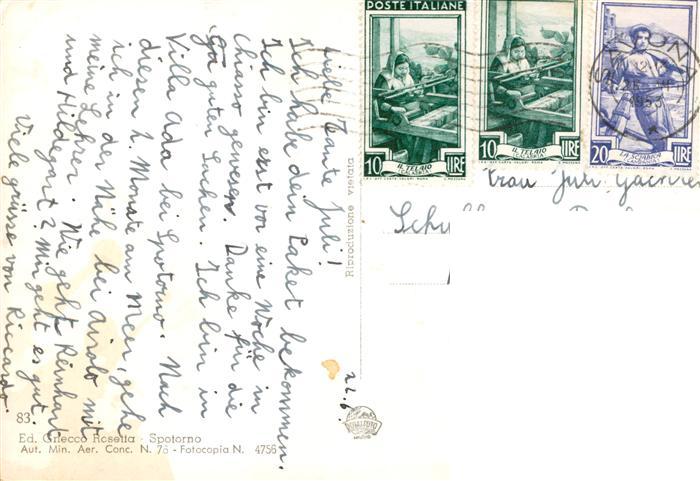 Liebe Tante Juli!
Ich habe dein Paket bekommen.
Ich bin erst vor eine Woche in
Chiasso gewesen. Danke für die
guten Sachen. Ich bin in
Villa Ada bei Spotorno. Nach
diesen 2. Monate am Meer, gehe
ich in der Nähe bei Airolo mit
meine Lehrer. Wie geht Reinhart
und Hildegart? Mir geht es gut.
Viele grüsse von Riccardo.
22.6.
83
Ed. Griecco Rosetta - Spotorno
Aut. Min. Aer. Conc. N. 76 - Fotocopia N. 4756
Riproduzione vietata
POSTE ITALIANE
10 IL TELAIO LIRE
10 IL TELAIO LIRE
20 LA SCIABICA LIRE
1953
Frau Juli